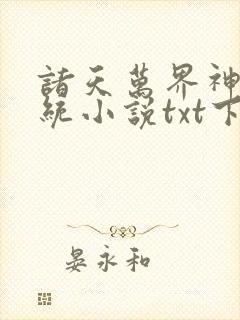 諸天萬界神
統小說txt下
晏永和